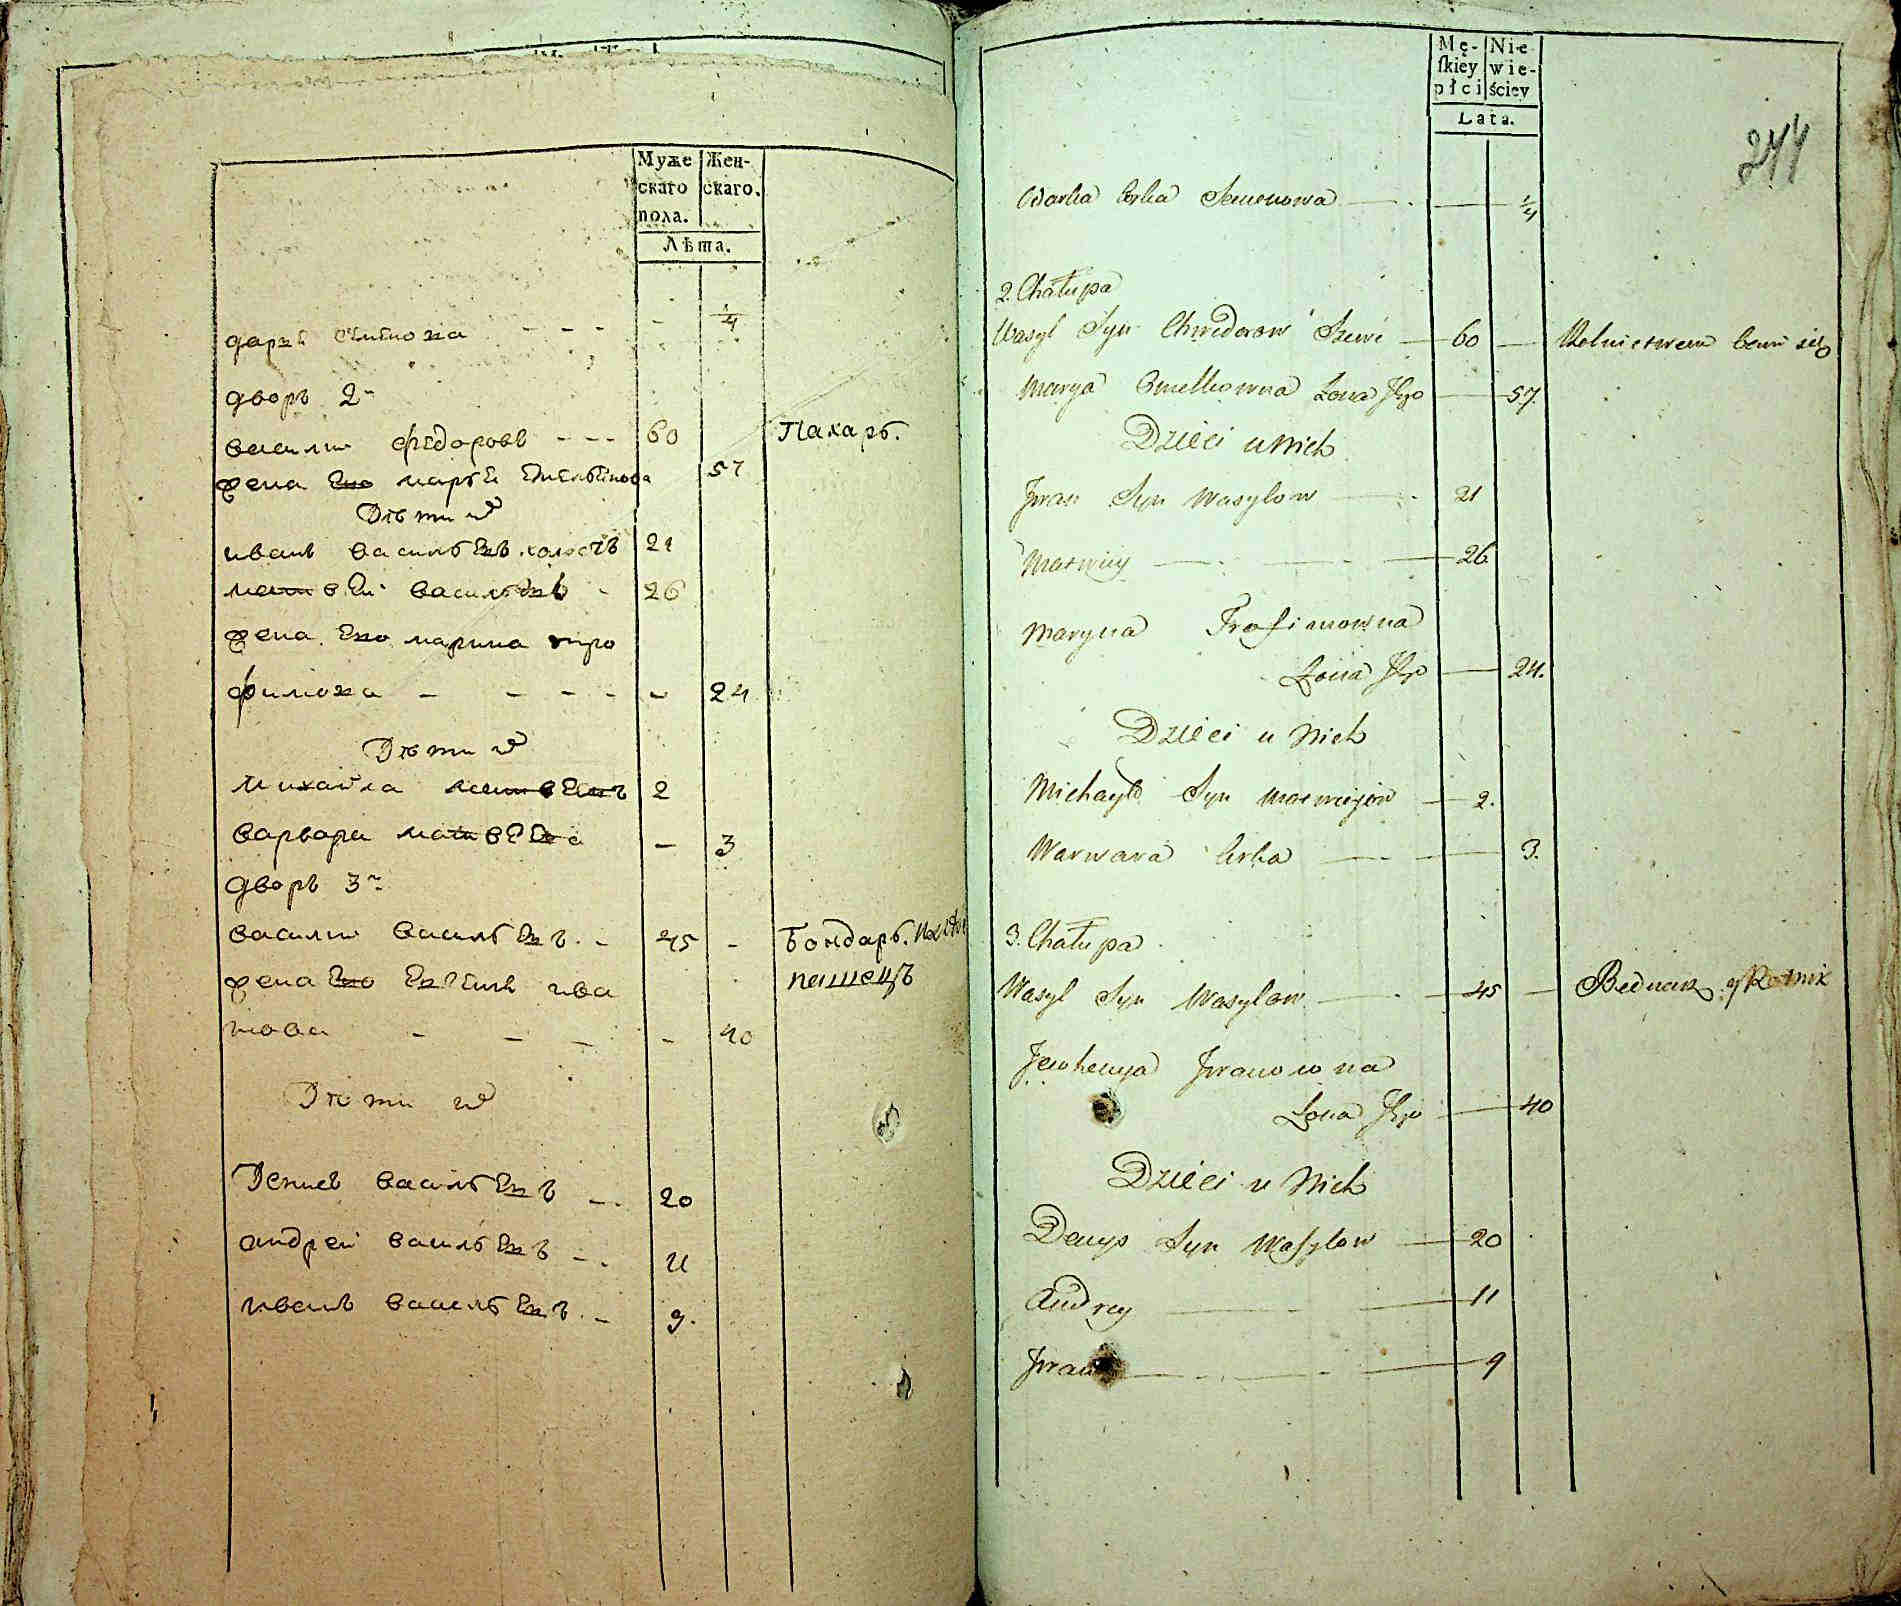 Муже Жен-
скаго скаго.
пола.
Лѣта.
дарья семенова - - - - 1/4
дворъ 2-
василии федоровъ - - - 60 Пахарь.
жена Его марья Емельянова 57
Дѣти их
иванъ васильевъ холостъ 21
матвеи васильевъ - 26
жена Его марина тро
фимова - - - - - 24
Дѣти их
михаила матвеевъ 2
варвара матвеева - 3
дворъ 3-
василии васильевъ - 45 - Бондарь.
жена Его Евгенья ива
нова - - - - 40
Дѣти их
Денисъ васильевъ - 20
андреи васильевъ - 11
иванъ васильевъ - 9.
Mę- Nie
skiey wie-
płci ściey
Lata.
244
Odarka Corka Semenowa 1/4
2. Chałupa
Wasyl Syn Chwedorow Szewc 60 Rolnictwem bawi się
Marya Omelkowna Zona Jego 57.
Dzieci u Nich
Jwan Syn Wasylow 21
Matwiiy 26
Maryna Trofimowna
Zona Jego 24.
Dzieci u Nich
Michayło Syn Matwiejow 2.
Warwara Corka 3.
3. Chałupa
Wasyl Syn Wasylow 45 Bednarz y Rolnik
Jewhenya Jwanowna
Zona Jego 40
Dzieci u Nich
Denys Syn Wasylow 20
Andrey 11
Jwan 9